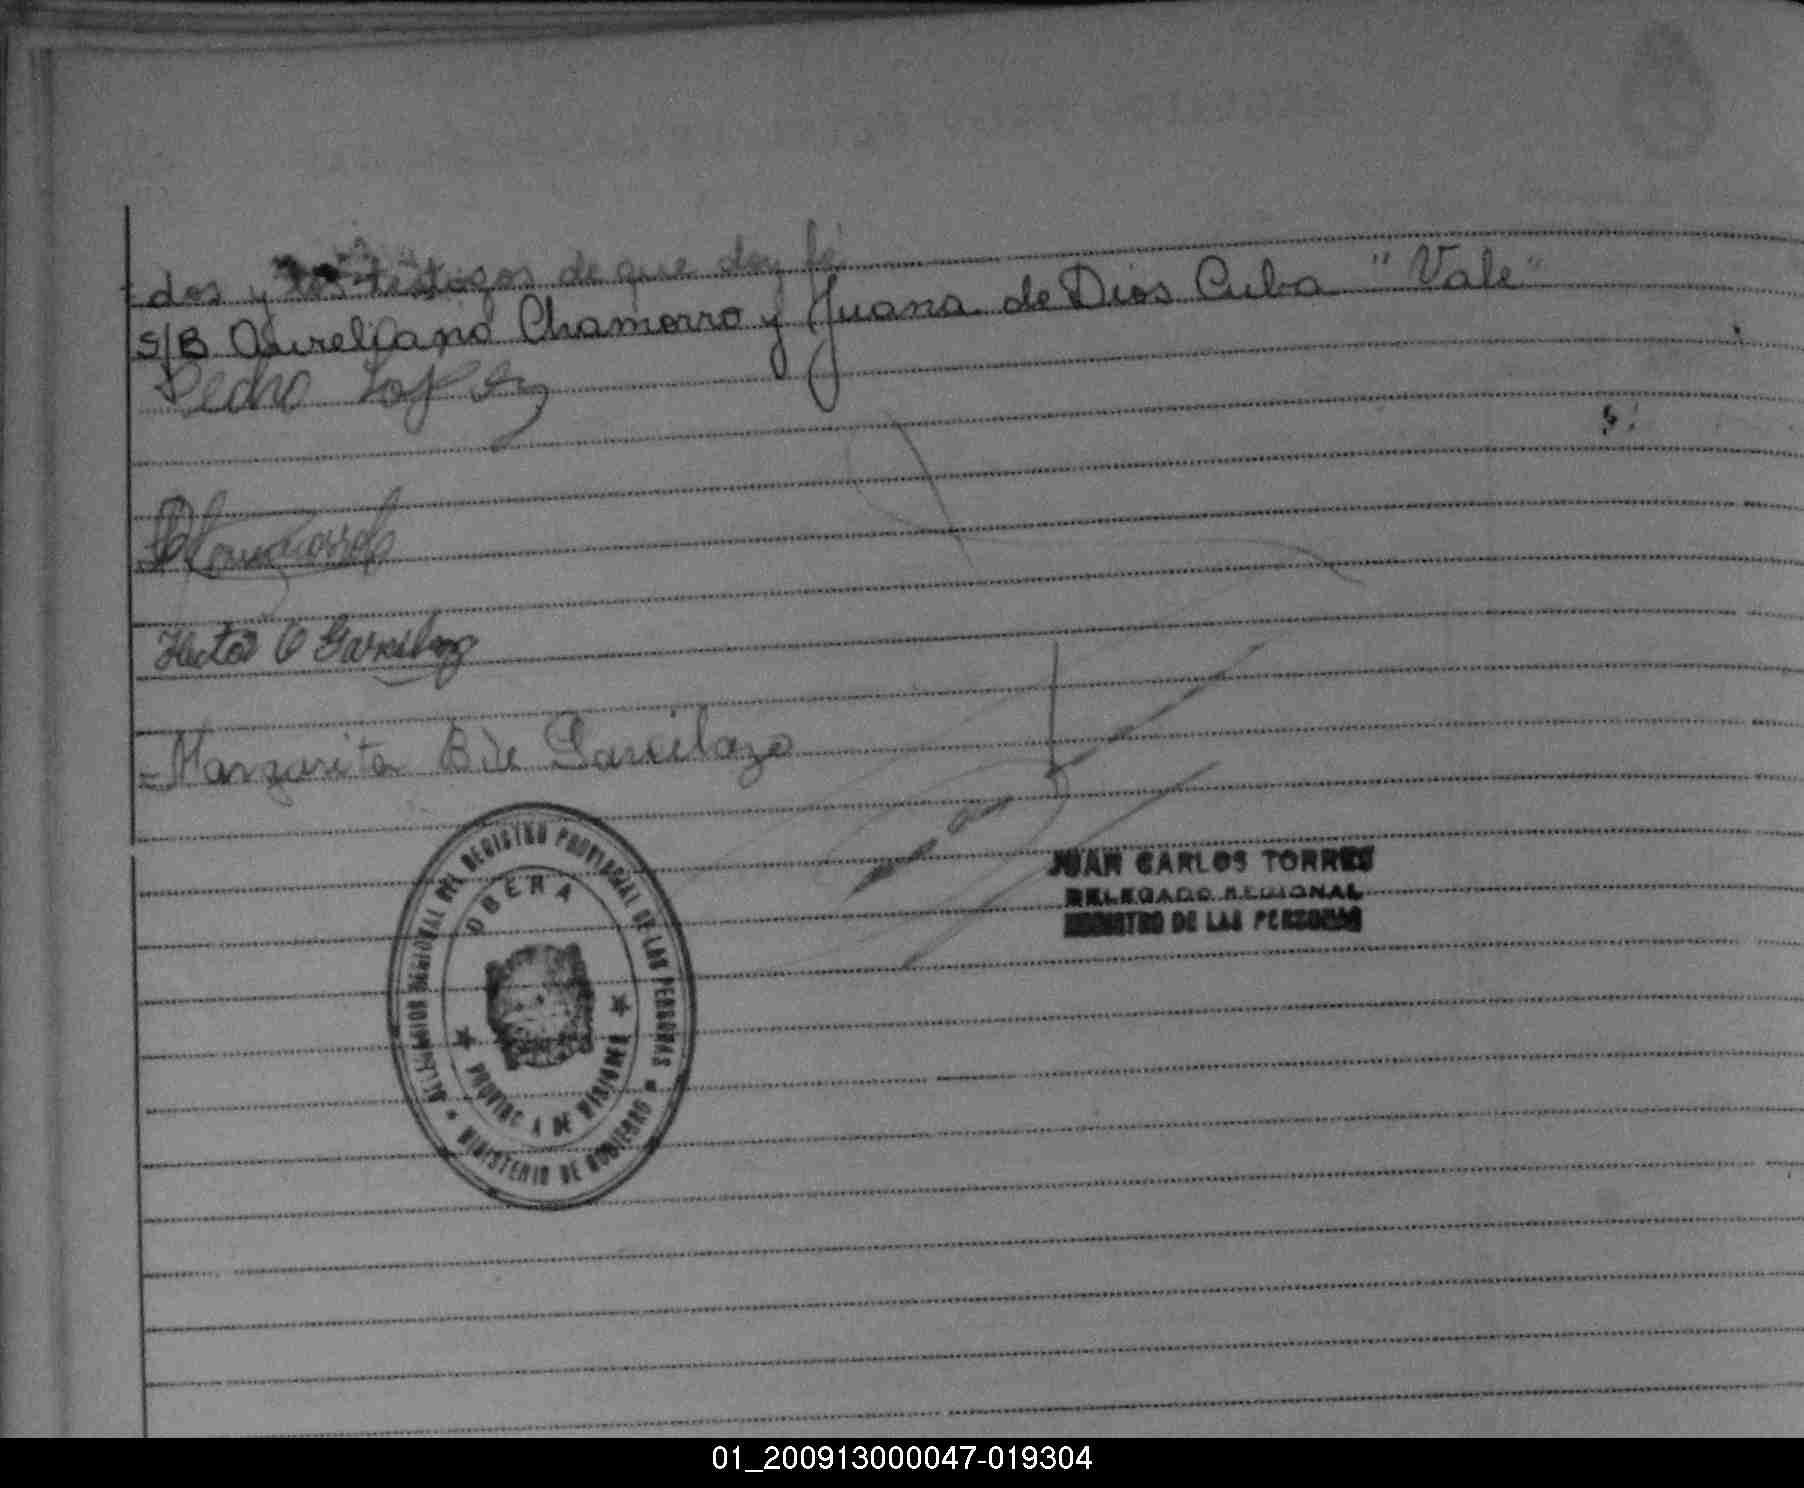 dos y los testigos de que doy fé
S/B Aureliano Chamorro y Juana de Dios Cuba "Vale"
Pedro Lopez
Hector O Garcilazo
Margarita B. de Garcilazo
DELEGACION REGIONAL DEL REGISTRO PROVINCIAL DE LAS PERSONAS
OBERA
PROVINCIA DE MISIONES
MINISTERIO DE GOBIERNO
JUAN CARLOS TORRES
DELEGADO REGIONAL
REGISTRO DE LAS PERSONAS
01_200913000047-019304